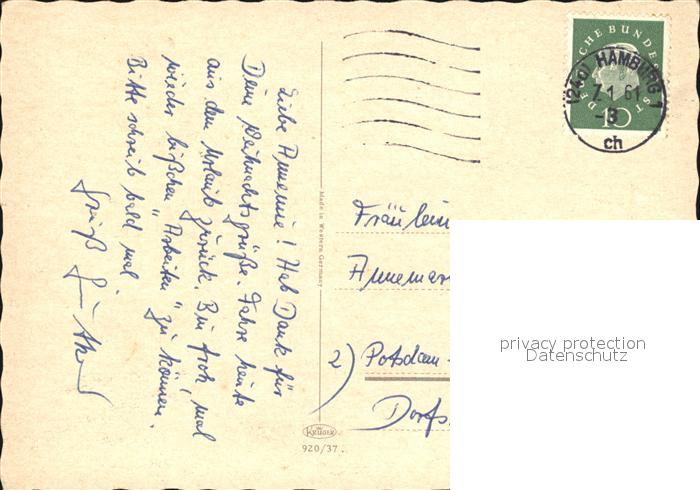 Liebe Annemie! Hab Dank für
Deine Weihnachtsgrüße. Fahre heute
aus dem Urlaub zurück. Bin froh, mal
wieder bißchen "Arbeiten" zu können.
Bitte schreib bald mal.
Gruß
Made in Western Germany
DEUTSCHE BUNDESPOST
10
(24a) HAMBURG 1
7.1.61
-8
ch
Fräulein
Annemar
2) Potsdam-
Dorfs
Krüger
920/37.
privacy protection
Datenschutz